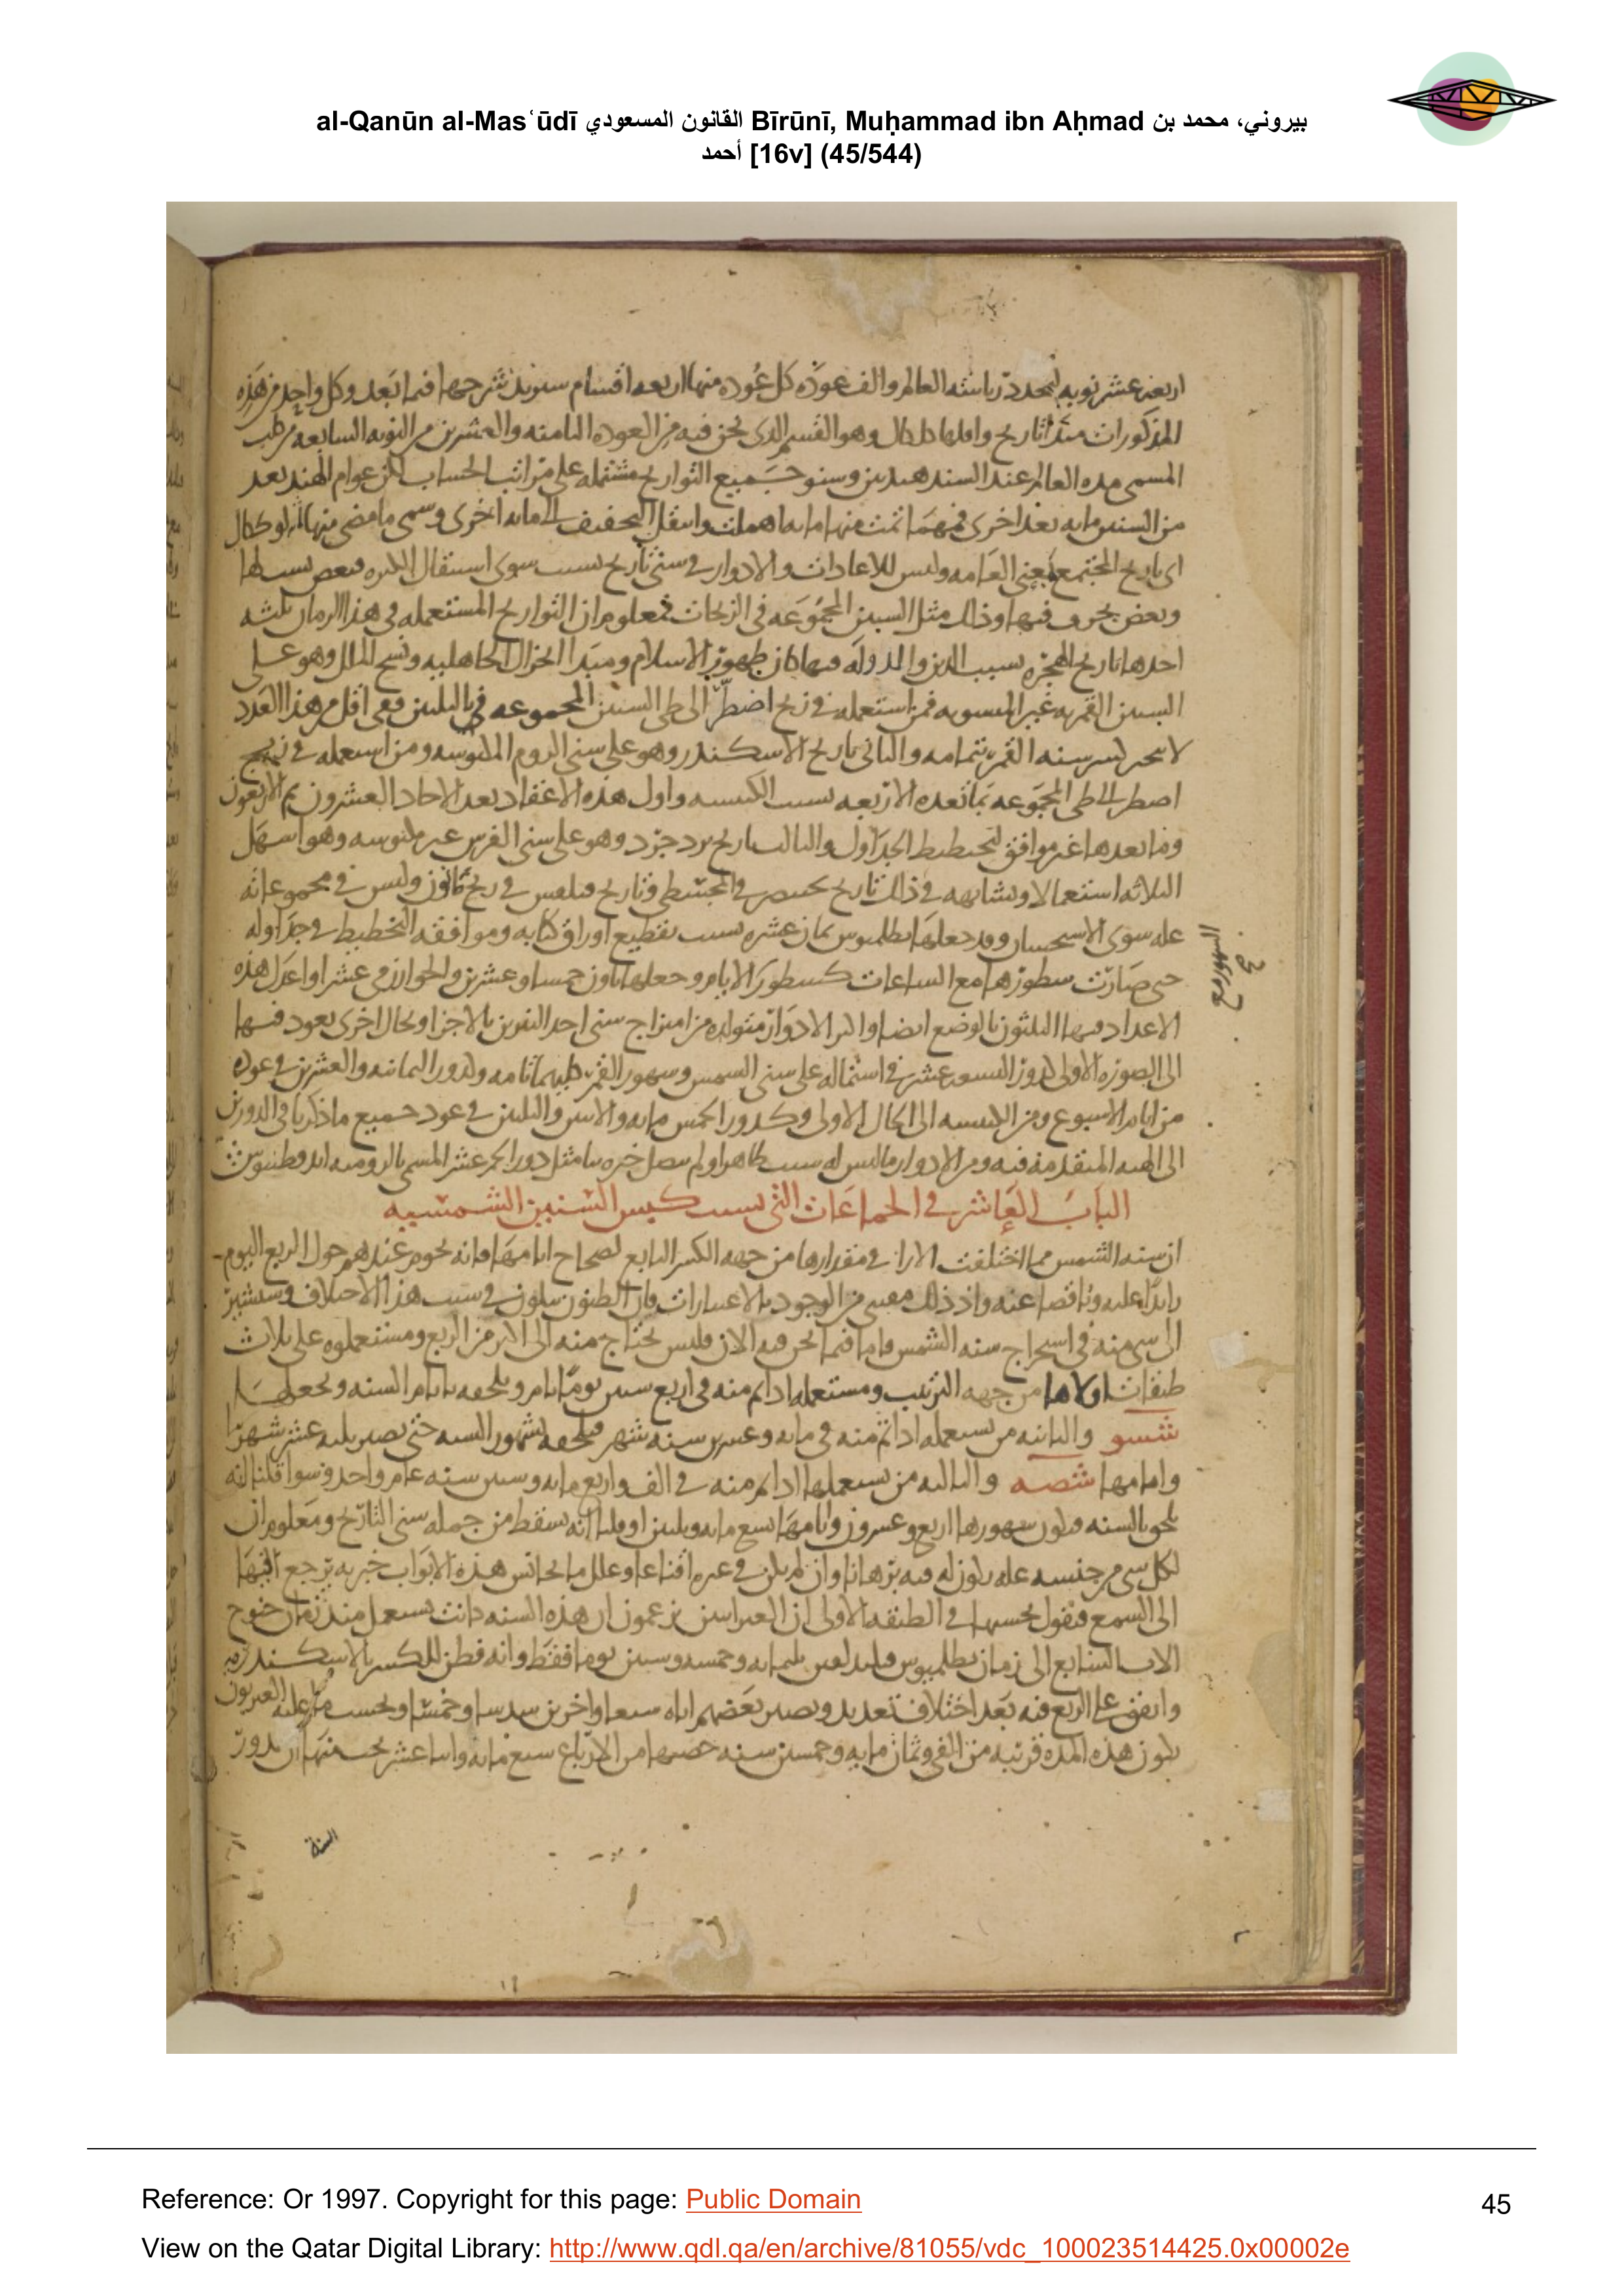 al-Qanūn al-Masʿūdī القانون المسعودي Bīrūnī, Muḥammad ibn Aḥmad بيروني، محمد بن
أحمد [16v] (45/544)
اربعه عشر نوبه لتجدد رياسه العالم والف عوده كل عوده منها اربعه اقسام سنوند شرحها فيما بعد وكل واحد من هذه
المذكورات مبدا تاريخ واقلها كل كال وهو القسم الذى نحن فيه من العوده الثامنه والعشرين من النوبه السابعه من كلب
المسمى مده العالم عند السند هند وسنو جميع التواريخ مشتمله على مراتب الحساب لكن عوام الهند بعد
من السنين مايه بعد اخرى فمهما تمت منها مايه اهملت وانتقل التخفيف الى مايه اخرى وسمى ما مضى منها لوككال
اى تاريخ المجتمع يعنى العامه وليس للاعادات والادوار فى سنى تاريخ سبب سوى استثقال الكثره فبعض يسقطها
وبعض يحرف فيها وذلك مثل السنين المجموعه فى الزيجات فمعلوم ان التواريخ المستعمله فى هذا الزمان ثلثه
احدها تاريخ الهجره بسبب الدين والدوله فبها كان ظهور الاسلام ومبدا انخزال الجاهليه ونسخ الملل وهو على
السنين القمريه غير المنسوبه فمن استعمله فى زيج اضطر الى طى السنين المجموعه فى بالثلثين ففى اقل من هذا العدد
لا ينجبر كسر سنه القمر بتمامه والثانى تاريخ الاسكندر وهو على سنى الروم المكبوسه ومن استعمله فى زيج
اضطر الى طى المجموعه بما تعده الاربعه بسبب الكبيسه واول هذه الاعداد بعد الاحاد العشرون ثم الاربعون
وما بعدها غير موافق لتخطيط الجداول والثالث تاريخ يزدجرد وهو على سنى الفرس غير مكبوسه وهو اسهل
الثلاثه استعمالا ويشابهه فى ذلك تاريخ بختنصر فى المجسطى وتاريخ فيلفس فى زيج قانون وليس فى مجموعاته
عله سوى الاستحسان وقد جعلها بطلميوس ثمان عشره بسبب تقطيع اوراق كتابه وموافقه التخطيط فى جداوله
حتى صارت سطورها مع الساعات كسطور الايام وجعلها ثاون خمسا وعشرين والخوارزمى عشرا واعدل هذه
الاعداد فيها الثلثون بالوضع ايضا واكثر الادوار متولده من امتزاج سنى احد النيرين بالاخر او بحال اخرى يعود فيها
الى الصوره الاولى كدور التسعه عشر فى اشتماله على سنى الشمس وشهور القمر كليهما تامه وكدور الثمانيه والعشرين فى عوده
من ايام الاسبوع ومن الكبيسه الى الحال الاولى وكدور الخمس مايه والاثنين والثلثين فى عود جميع ما ذكرنا فى الدورين
الى الهيه المتقدمه فيه ومن الادوار ما ليس له سبب ظاهر او لم يصل خبره بنا مثل دور الخمسه عشر المسمى بالروميه
الباب العاشر فى الجماعات التى بسبب كبس السنين الشمسيه
ان سنه الشمس مما اختلفت الارا فى مقدارها من جهه الكسر التابع لصحاح ايامها فانه يحوم عندهم حول الربع اليوم
زايدا عليه وناقصا عنه واذ ذلك مقتبس من الوجود بالاعتبارات فان الظنون تتلون فى سبب هذا الاختلاف وسنشير
الى شى منه فى استخراج سنه الشمس واما فيما نحن فيه الان فليس يحتاج منه الى اكثر من الربع ومستعملوه على ثلاث
طبقات اولاها من جهه الترتيب ومستعمله اذا تم منه فى اربع سنين يوما تاما ويلحقه بايام السنه ويجعلها
شسو والثانيه من يستعمله اذا تم منه فى مايه وعشرين سنه شهر فيلحقه بشهور السنه حتى يصير ثلثه عشر شهرا
وايامها شصه والثالثه من يستعملها اذا تم منه فى الف واربع مايه وستين سنه عام واحد وسوا قلنا انه
يلحق بالسنه فيكون شهورها اربع وعشرون وايامها سبع مايه وثلثين او قلنا انه يسقط من جمله سنى التاريخ ومعلوم ان
لكل شى من جنسه عله يكون له فيه برهانا وان لم يكن فى غيره اقناعا وعلل ما يجانس هذه الابواب خبريه يرجع فيها
الى السمع فنقول بحسبها فى الطبقه الاولى ان العبرانيين يزعمون ان هذه السنه كانت تستعمل منذ زمان خنوخ
الاب السابع الى زمان بطلميوس فيلدلفس ثلثمايه وخمسه وستين يوما فقط وانه فطن للكسر بالاسكندريه
واتفق على الربع فيه بعد اختلاف بعديد وتصيير بعضهم اياه سبعا واخرين سدسا وخمسا وبحسب ما عليه العبريون
يكون هذه المده قريبه من الف وثمان مايه وخمسين سنه حصتها من الارباع سبع مايه واثنا عشر بحسبها ان يدور
السنة
Reference: Or 1997. Copyright for this page: Public Domain
45
View on the Qatar Digital Library: http://www.qdl.qa/en/archive/81055/vdc_100023514425.0x00002e